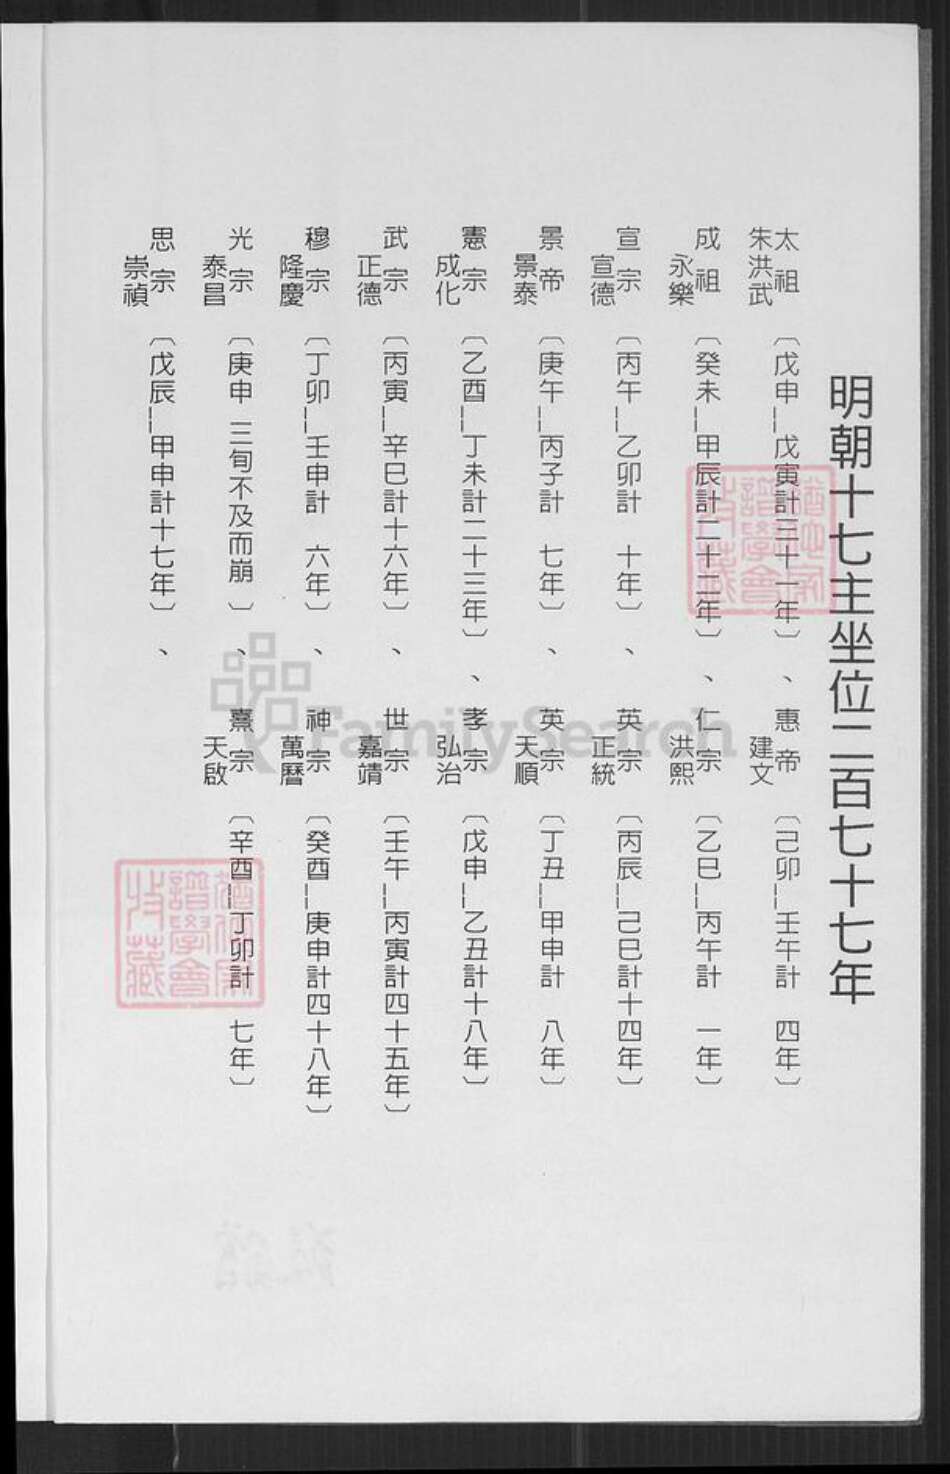 明朝十七主坐位二百七十七年
太祖 朱洪武〔戊申__戊寅計三十一年〕、惠帝 建文〔己卯__壬午計 四年〕
成祖 永樂〔癸未__甲辰計二十二年〕、仁宗 洪熙〔乙巳__丙午計 一年〕
宣宗 宣德〔丙午__乙卯計 十年〕、英宗 正統〔丙辰__己巳計十四年〕
景帝 景泰〔庚午__丙子計 七年〕、英宗 天順〔丁丑__甲申計 八年〕
憲宗 成化〔乙酉__丁未計二十三年〕、孝宗 弘治〔戊申__乙丑計十八年〕
武宗 正德〔丙寅__辛巳計十六年〕、世宗 嘉靖〔壬午__丙寅計四十五年〕
穆宗 隆慶〔丁卯__壬申計 六年〕、神宗 萬曆〔癸酉__庚申計四十八年〕
光宗 泰昌〔庚申 三旬不及而崩〕、熹宗 天啟〔辛酉__丁卯計 七年〕
思宗 崇禎〔戊辰__甲申計十七年〕、
FamilySearch
譜學會
收藏
譜學會
收藏